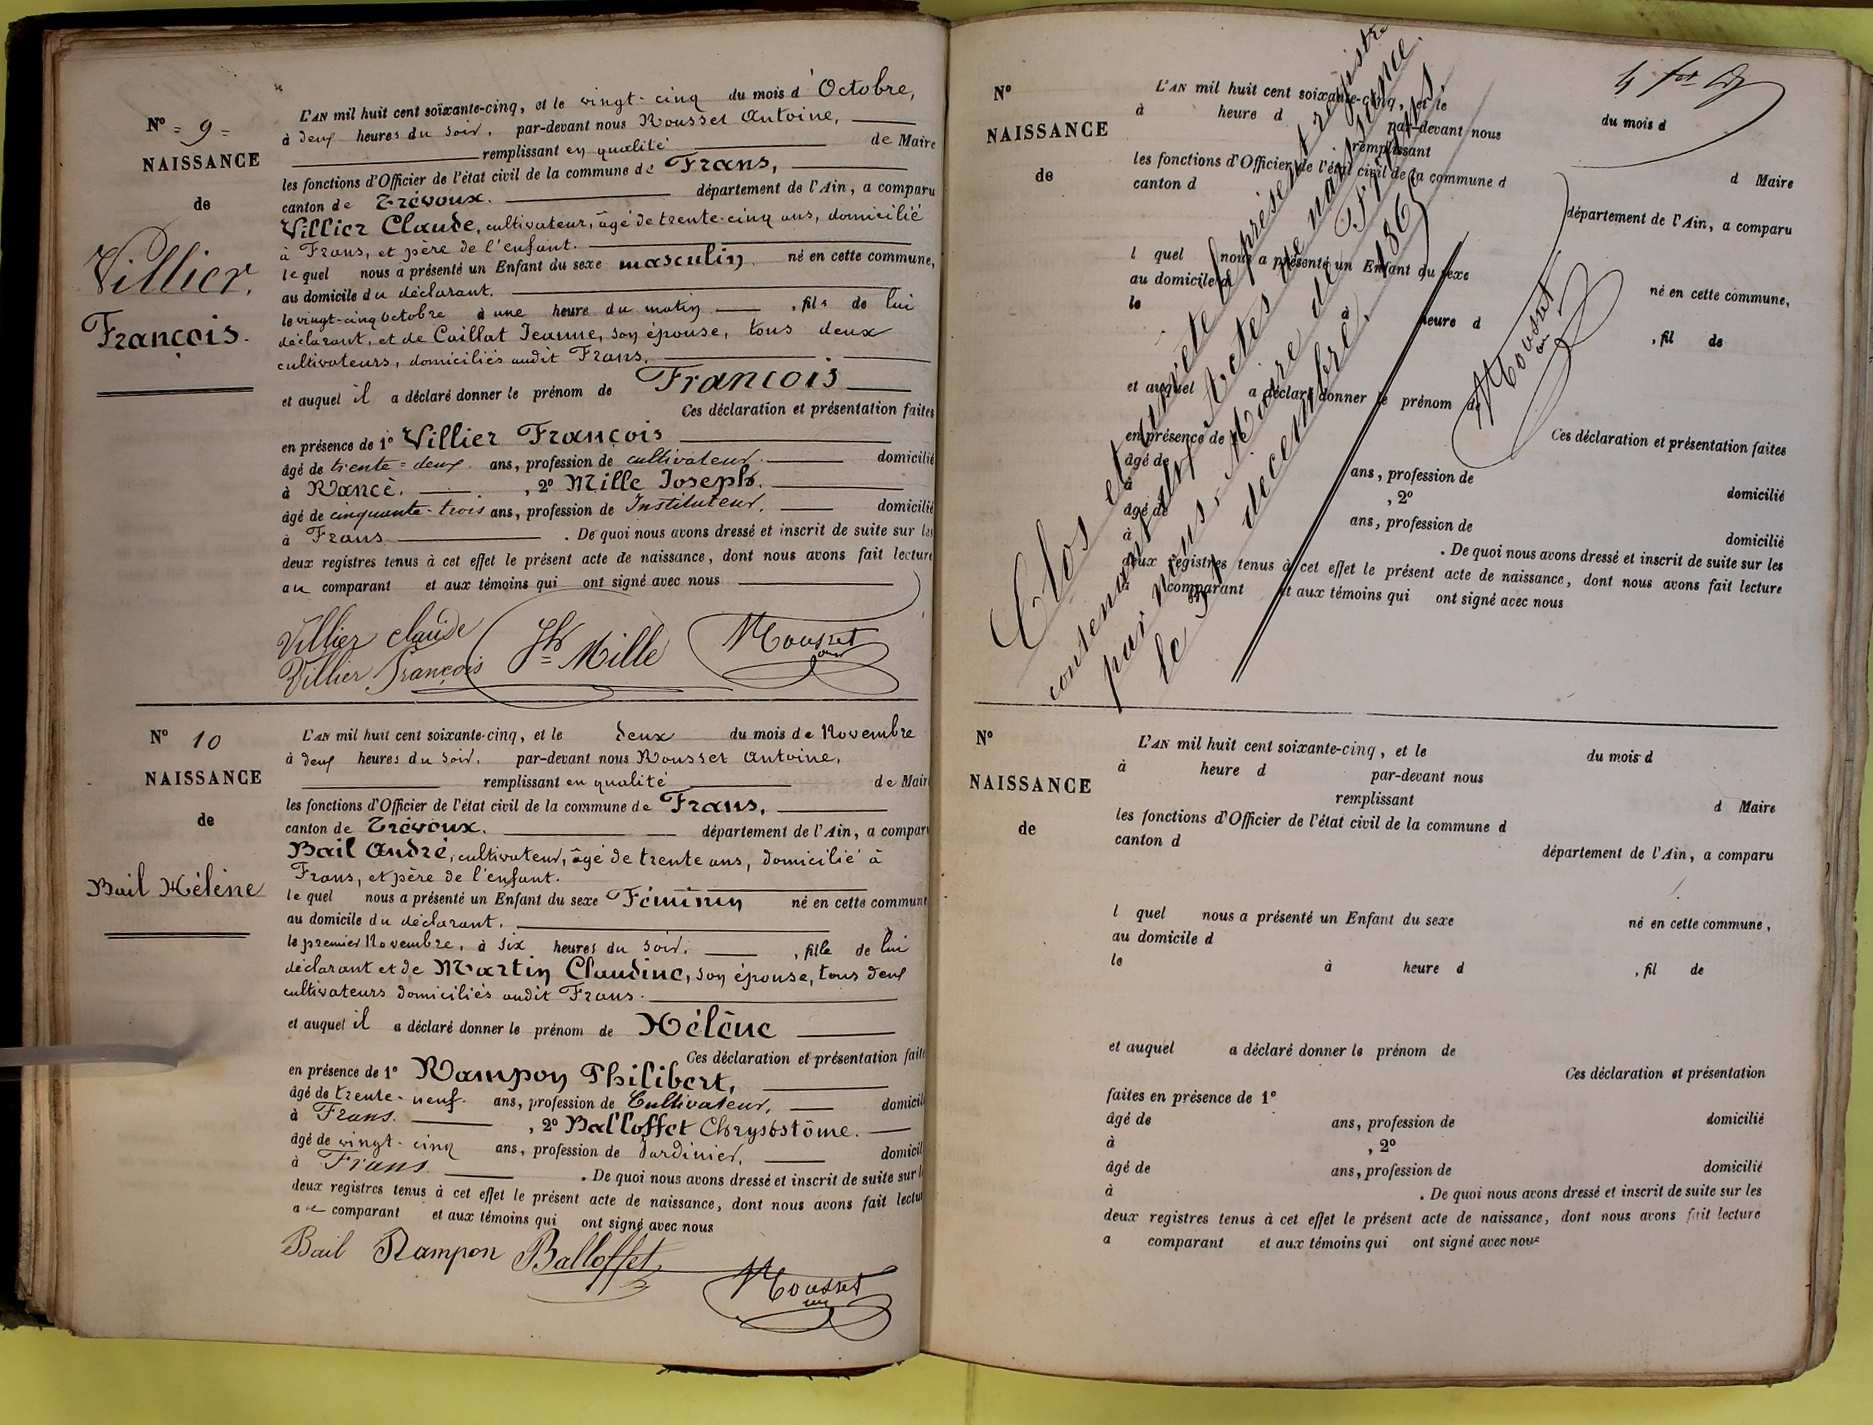 N° = 9 =
NAISSANCE
de
Villier
François.
L'AN mil huit cent soixante-cinq, et le vingt-cinq du mois d'Octobre,
à deux heures du soir, par-devant nous Rousset Antoine,
remplissant en qualité de Maire
les fonctions d'Officier de l'état civil de la commune de Frans,
canton de Trévoux. département de l'Ain, a comparu
Villier Claude, cultivateur, âgé de trente-cinq ans, domicilié
à Frans, et père de l'enfant.
lequel nous a présenté un Enfant du sexe masculin né en cette commune,
au domicile du déclarant.
le vingt-cinq Octobre à une heure du matin, fils de lui
déclarant, et de Caillat Jeanne, son épouse, tous deux
cultivateurs, domiciliés audit Frans.
et auquel il a déclaré donner le prénom de François
Ces déclaration et présentation faites
en présence de 1° Villier François
âgé de trente-deux ans, profession de cultivateur. domicilié
à Rancé. , 2° Mille Joseph.
âgé de cinquante-trois ans, profession de Instituteur, domicilié
à Frans. De quoi nous avons dressé et inscrit de suite sur les
deux registres tenus à cet effet le présent acte de naissance, dont nous avons fait lecture
au comparant et aux témoins qui ont signé avec nous
Villier claude Jh Mille Rousset
Villier François
N° 10
NAISSANCE
de
Bail Hélène
L'AN mil huit cent soixante-cinq, et le deux du mois de Novembre
à deux heures du soir, par-devant nous Rousset Antoine,
remplissant en qualité de Maire
les fonctions d'Officier de l'état civil de la commune de Frans,
canton de Trévoux. département de l'Ain, a comparu
Bail André, cultivateur, âgé de trente ans, domicilié à
Frans, et père de l'enfant.
lequel nous a présenté un Enfant du sexe Féminin né en cette commune
au domicile du déclarant.
le premier Novembre, à six heures du soir. , fille de lui
déclarant et de Martin Claudine, son épouse, tous deux
cultivateurs domiciliés audit Frans.
et auquel il a déclaré donner le prénom de Hélène
Ces déclaration et présentation faites
en présence de 1° Rampon Philibert,
âgé de trente-neuf ans, profession de Cultivateur, domicilié
à Frans. , 2° Balloffet Chrysostôme.
âgé de vingt-cinq ans, profession de Jardinier, domicilié
à Frans. De quoi nous avons dressé et inscrit de suite sur les
deux registres tenus à cet effet le présent acte de naissance, dont nous avons fait lecture
au comparant et aux témoins qui ont signé avec nous
Bail Rampon Balloffet
Rousset
N°
NAISSANCE
de
L'AN mil huit cent soixante-cinq, et le du mois d
à heure d par-devant nous
remplissant d Maire
les fonctions d'Officier de l'état civil de la commune d
canton d département de l'Ain, a comparu
l quel nous a présenté un Enfant du sexe né en cette commune,
au domicile d
le à heure d , fil de
et auquel a déclaré donner le prénom de
Ces déclaration et présentation faites
en présence de
âgé de ans, profession de domicilié
à , 2°
âgé de ans, profession de domicilié
à . De quoi nous avons dressé et inscrit de suite sur les
deux registres tenus à cet effet le présent acte de naissance, dont nous avons fait lecture
a comparant et aux témoins qui ont signé avec nous
Clos et arrêté le présent registre
contenant dix Actes de naissance.
par nous, Maire de Frans
le 31 décembre 1865
Rousset
N°
NAISSANCE
de
L'AN mil huit cent soixante-cinq, et le du mois d
à heure d par-devant nous
remplissant d Maire
les fonctions d'Officier de l'état civil de la commune d
canton d département de l'Ain, a comparu
l quel nous a présenté un Enfant du sexe né en cette commune,
au domicile d
le à heure d , fil de
et auquel a déclaré donner le prénom de
Ces déclaration et présentation
faites en présence de 1°
âgé de ans, profession de domicilié
à , 2°
âgé de ans, profession de domicilié
à . De quoi nous avons dressé et inscrit de suite sur les
deux registres tenus à cet effet le présent acte de naissance, dont nous avons fait lecture
a comparant et aux témoins qui ont signé avec nous